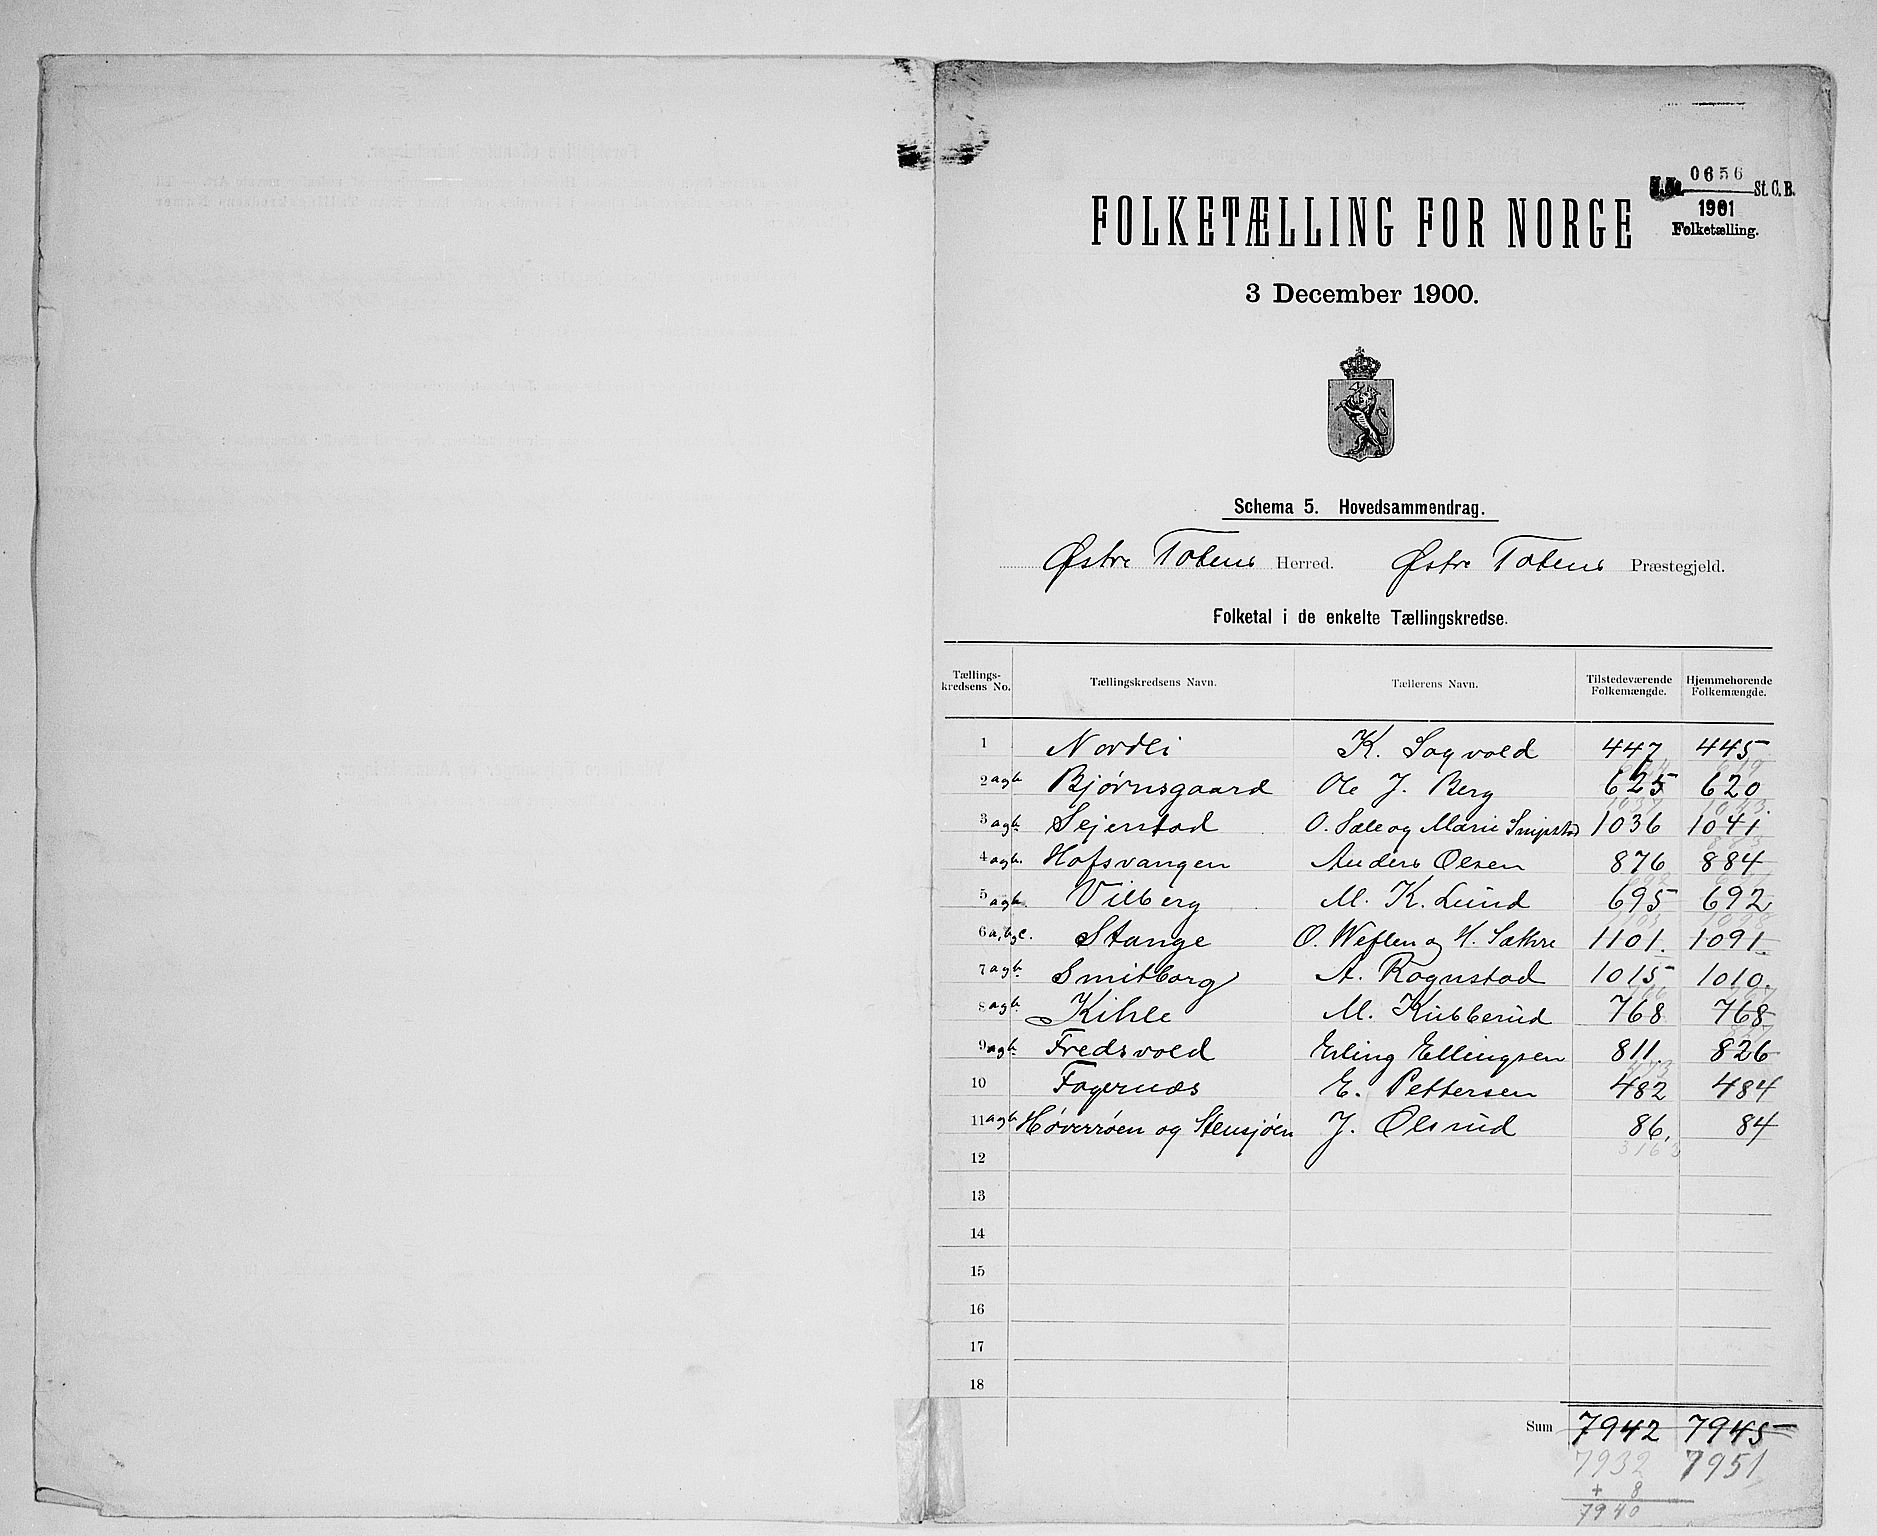 0656
J.No. St. C. B.
1901
Folketælling.
FOLKETÆLLING FOR NORGE
3 December 1900.
Schema 5. Hovedsammendrag.
Østre Totens Herred. Østre Totens Præstegjeld.
Folketal i de enkelte Tællingskredse.
Tællings-kredsens No. Tællingskredsens Navn. Tællerens Navn. Tilstedeværende Folkemængde. Hjemmehørende Folkemængde.
1 Nordli K. Sogvold 447 445
2 a og b Bjørnsgaard Ole J. Berg 625 620
3 a og b. Sejerstad O. Sæle og Marie Snipstad 1036 1041
4 a og b. Hofsvangen Anders Olsen 876 884
5 a og b. Vilberg M. K. Lund 695 692
6 a, b og c. Stange O. Weflen og H. Sæthre 1101. 1091
7 a og b. Smitborg A. Rognstad 1015 1010.
8 a og b. Kihle M. Kubberud 768 768
9 a og b. Fredsvold Erling Ellingsen 811. 826
10 Fagernæs E. Pettersen 482 484
11 a og b Høverrøen og Stensjøen J. Olsrud 86. 84
12
13
14
15
16
17
18
Sum 7942 7945
7932 7951
+ 8
7940